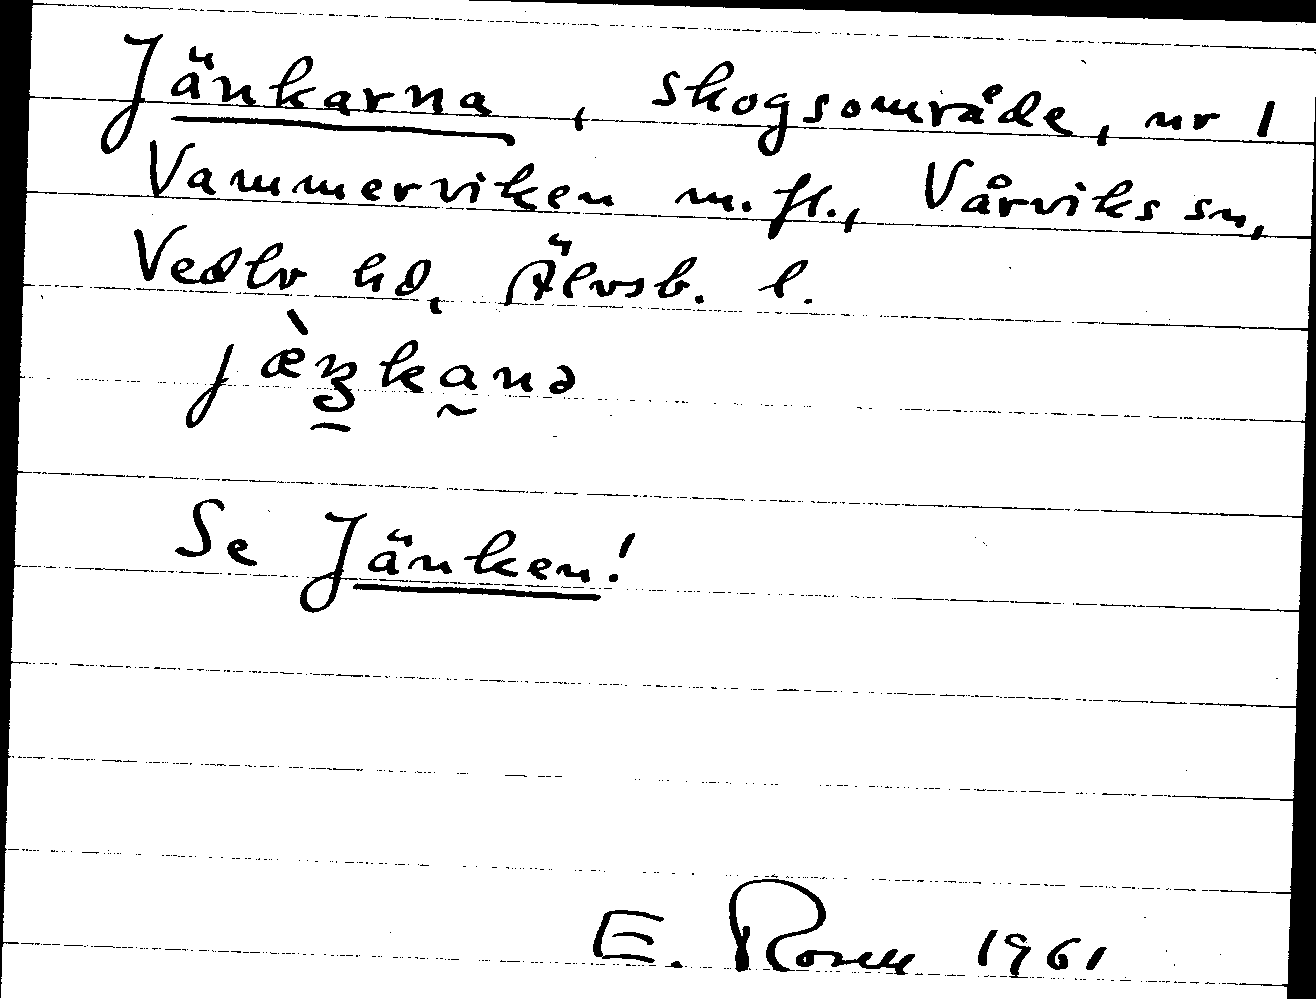 Jänkarna, skogsområde, nr 1
Vammerviken m.fl., Vårviks sn,
Vedbo hd, Älvsb. l.
Se Jänken!
E. Rosell 1961